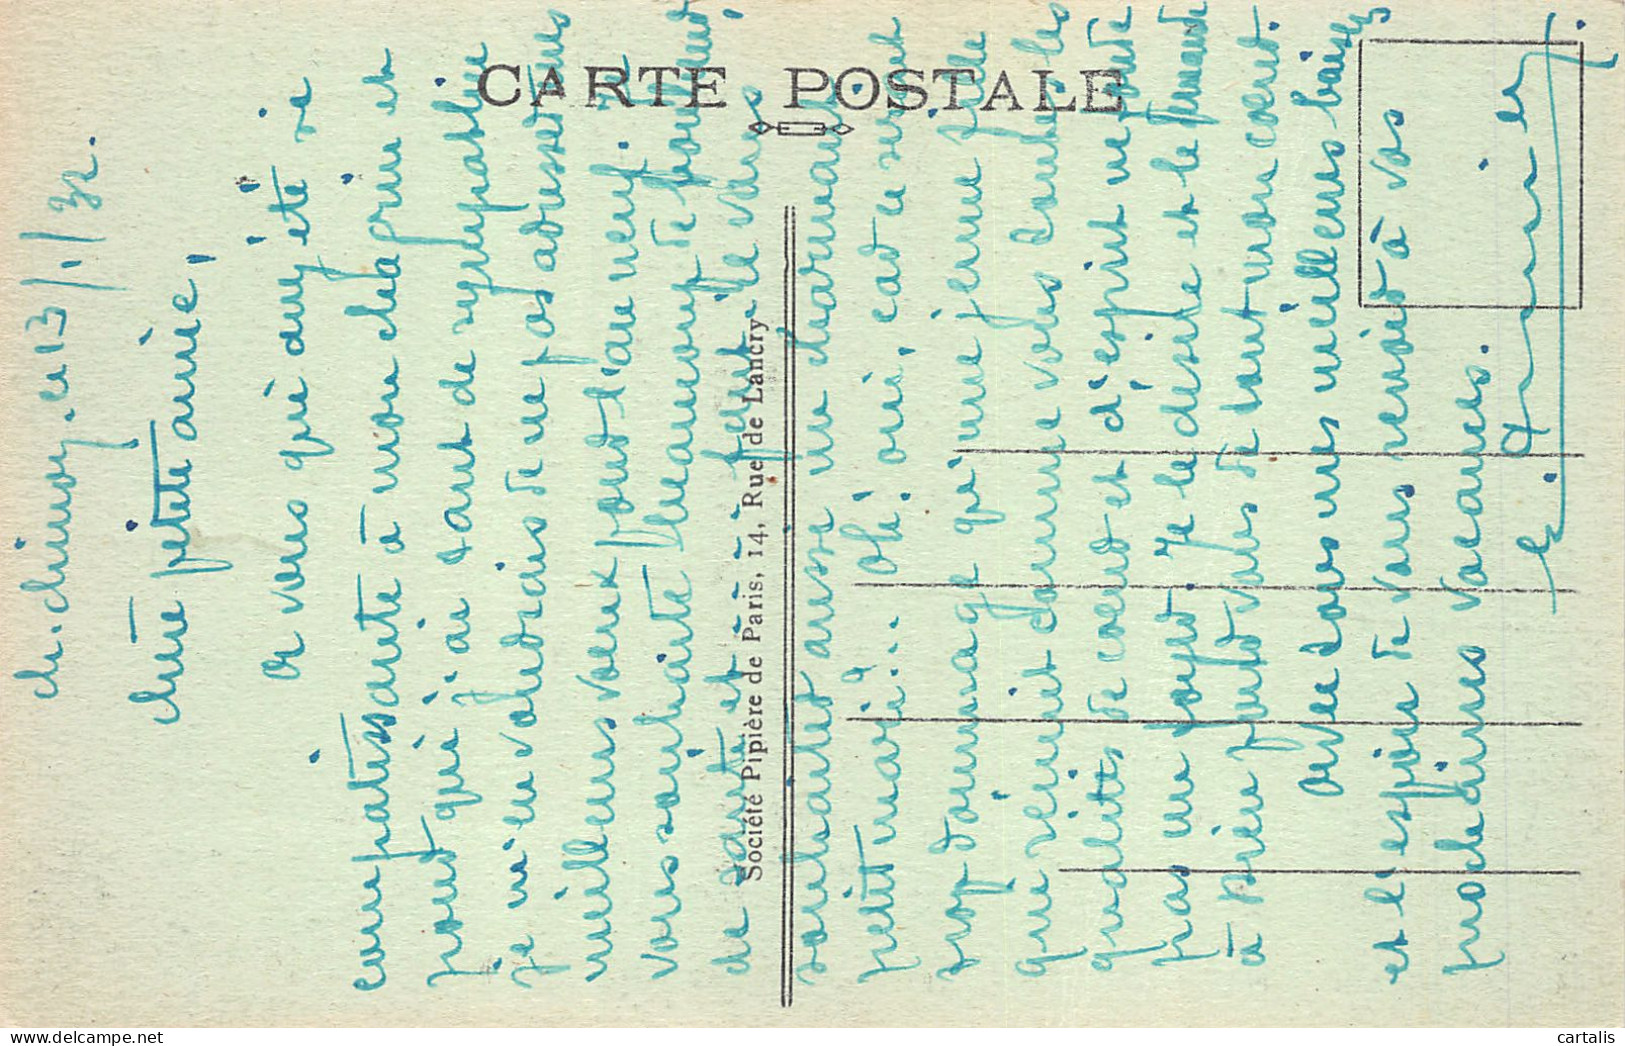 CARTE POSTALE
Société Pipière de Paris, 14, Rue de Lancry
ch. chimay. le 13/1/32.
Chère petite amie,
A vous qui avez été si
compatissante à mon chagrin et
pour qui j'ai tant de sympathie
je m'en voudrais de ne pas adresser mes
meilleurs vœux pour l'an neuf. Je
vous souhaite beaucoup de bonheur,
de santé et - peut-je vous
souhaiter aussi un charmant
petit mari?... Oh! oui, car ce serait
trop dommage qu'une jeune fille
qui réunit comme vous toutes les
qualités de cœur et d'esprit ne fonde
pas un foyer. Je le désire et le demande
à Dieu pour vous de tout mon cœur.
Avec tous mes meilleurs baisers
et l'espoir de vous revoir à vos
prochaines vacances.